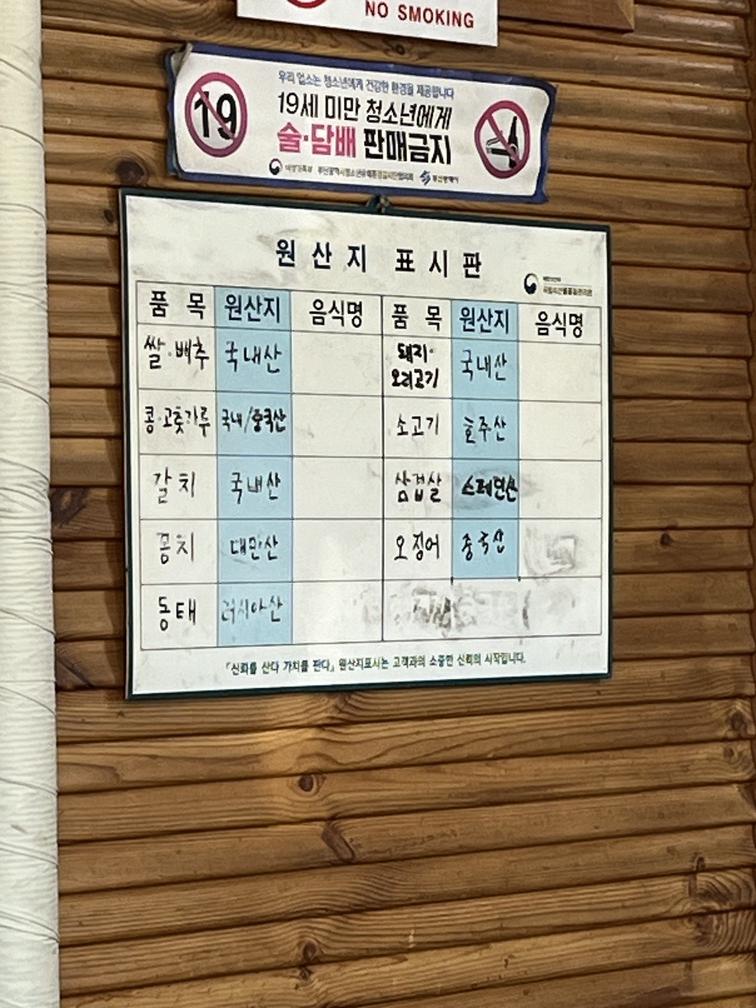 NO SMOKING
우리 업소는 청소년에게 건강한 환경을 제공합니다
19
19세 미만 청소년에게
술·담배 판매금지
여성가족부 부산광역시
원 산 지 표 시 판
국립농산물품질관리원
품 목 원산지 음식명 품 목 원산지 음식명
쌀·배추 국내산 돼지·오리고기 국내산
콩·고춧가루 국내/중국산 소고기 호주산
갈치 국내산 삼겹살 스페인산
꽁치 대만산 오징어 중국산
동태 러시아산
『신뢰를 산다 가치를 판다』 원산지표시는 고객과의 소중한 신뢰의 시작입니다.